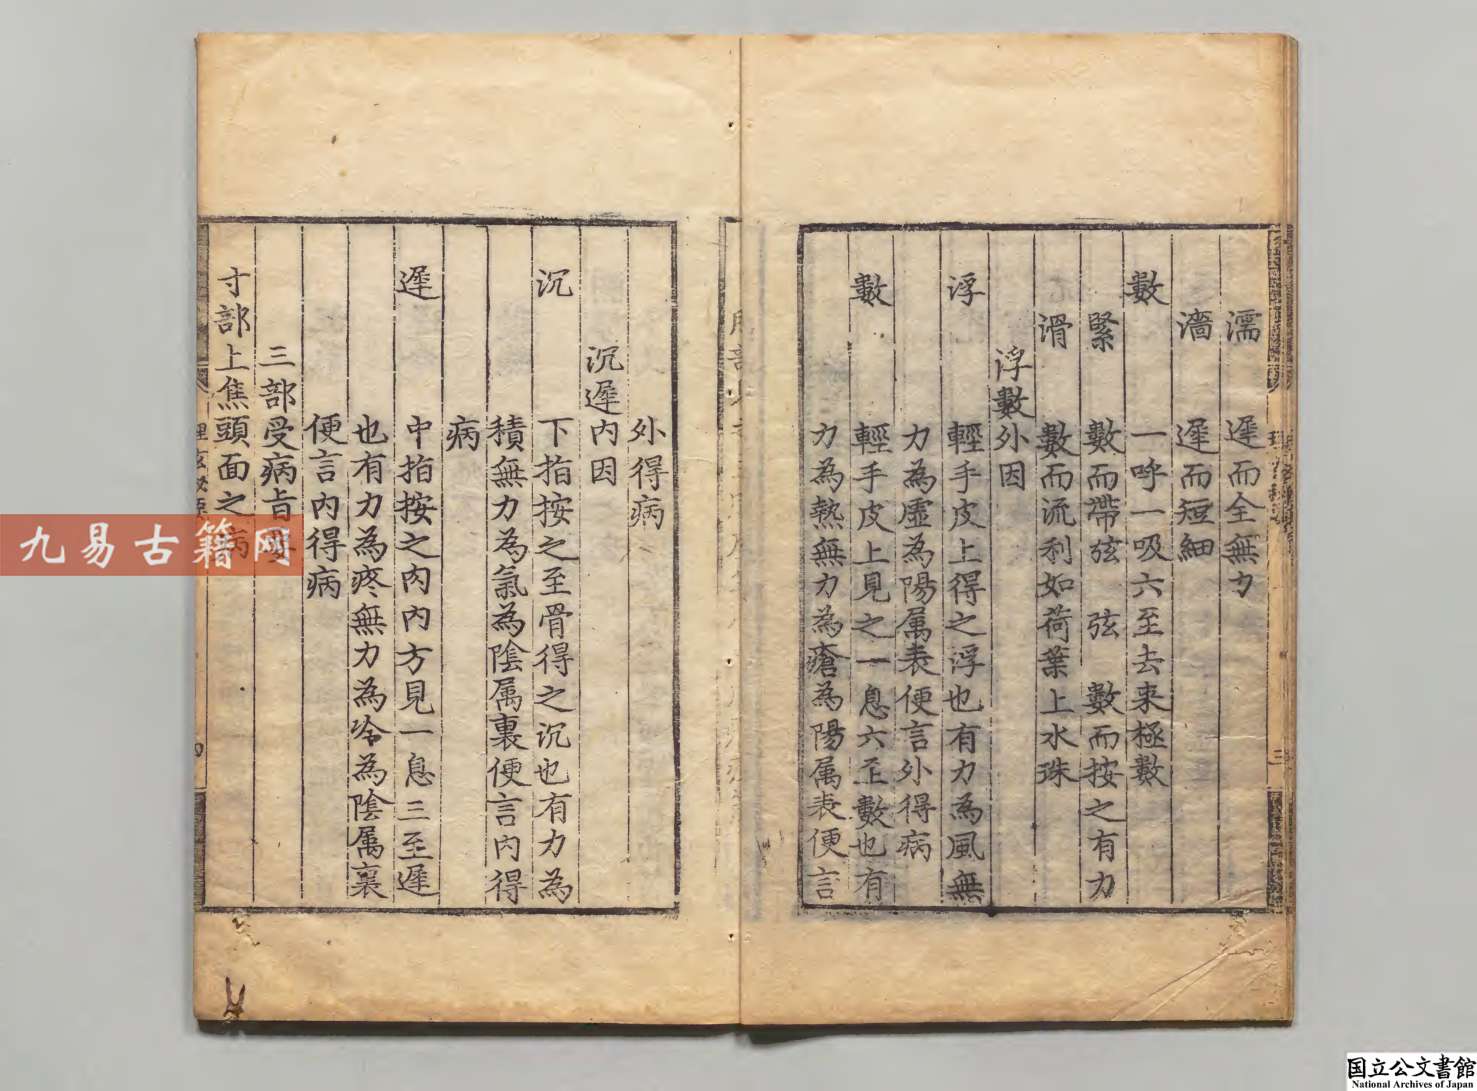 濡　遲而全無力
濇　遲而短細
數　一呼一吸六至去来極數
緊　數而帶弦　弦　數而按之有力
滑　數而流利如荷葉上水珠
浮數外因
浮　輕手皮上得之浮也有力為風無
力為虛為陽属表便言外得病
數　輕手皮上見之一息六至數也有
力為熱無力為瘡為陽属表便言
外得病
沉遲内因
沉　下指按之至骨得之沉也有力為
積無力為氣為陰属裏便言内得
病
遲　中指按之肉内方見一息三至遲
也有力為疼無力為冷為陰属裏
便言内得病
三部受病旨
寸部上焦頭面之病
三
九易古籍网
国立公文書館
National Archives of Japan